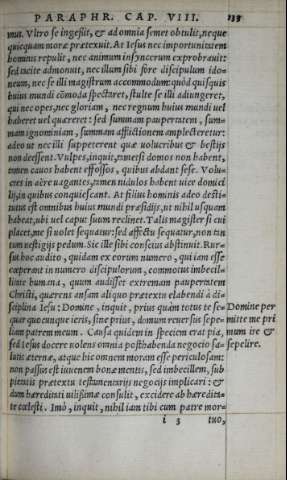 PARAPHR. CAP. VIII. 133
mus. Vltro se ingesit, & ad omnia semet obtulit, neque
quicquam moræ prætexuit. At Iesus nec importunitatem
hominis repulit, nec animum insyncerum exprobrauit:
sed tacite admonuit, nec illum sibi fore discipulum ido-
neum, nec se illi magistrum accommodum: quòd quisquis
mundi cōmoda spectaret, stulte se illi adiungeret,
qui nec opes, nec gloriam, nec regnum huius mundi uel
haberet uel quæreret: sed summam paupertatem, sum-
mam ignominiam, summam afflictionem amplecteretur:
adeo ut nec illi suppeterent quæ uolucribus & bestijs
non deessent. Vulpes, inquit, tametsi domos non habent,
tamen cauos habent effossos, quibus abdant sese. Volu-
cres in aëre uagantes, tamen nidulos habent uice domici-
lij, in quibus conquiescant. At filius hominis adeo desti-
tutus est omnibus huius mundi præsidijs, ut nihil usquam
habeat, ubi uel caput suum reclinet. Talis magister si cui
placet, me si uolet sequatur: sed affectu sequatur, non tan
tum uestigijs pedum. Sic ille sibi conscius abstinuit. Rur-
sus hoc audito, quidam ex eorum numero, qui iam esse
cœperant in numero discipulorum, commotus imbecil-
litate humana, quum audisset extremam paupertatem
Christi, quærens ansam aliquo prætextu elabendi à di-
sciplina Iesu: Domine, inquit, prius quàm totus te se-
quar quocunque ieris, sine prius, domum reuersus sepe-
liam patrem meum. Causa quidem in speciem erat pia,
sed Iesus docere uolens omnia posthabenda negocio sa-
lutis æternæ, atque hic omnem moram esse periculosam:
non passus est iuuenem bonæ mentis, sed imbecillem, sub
pietatis prætextu testamentarijs negocijs implicari: &
dum hæreditati uilissimæ consulit, excidere ab hæredita-
te cœlesti. Imò, inquit, nihil iam tibi cum patre mor-
i 3 tuo,
Domine per
mitte me pri
mum ire &
sepelire.